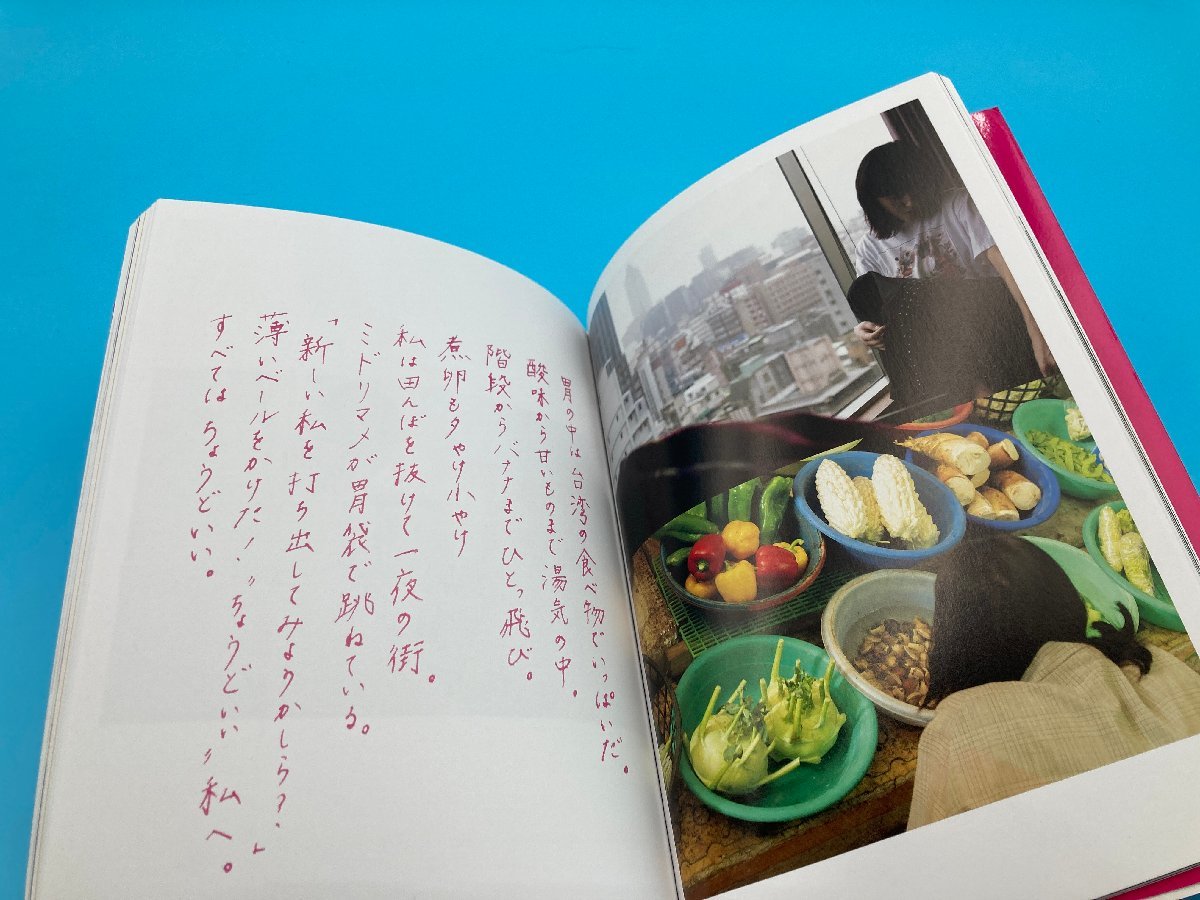 胃の中は台湾の食べ物でいっぱいだ。
酸味から甘いものまで湯気の中。
階段からバナナまでひとっ飛び。
煮卵も夕やけ小やけ
私は田んぼを抜けて一夜の街。
ミドリマメが胃袋で跳ねている。
「新しい私を打ち出してみようかしら?」
薄いベールをかけた、〝ちょうどいい〟私へ。
すべてはちょうどいい。